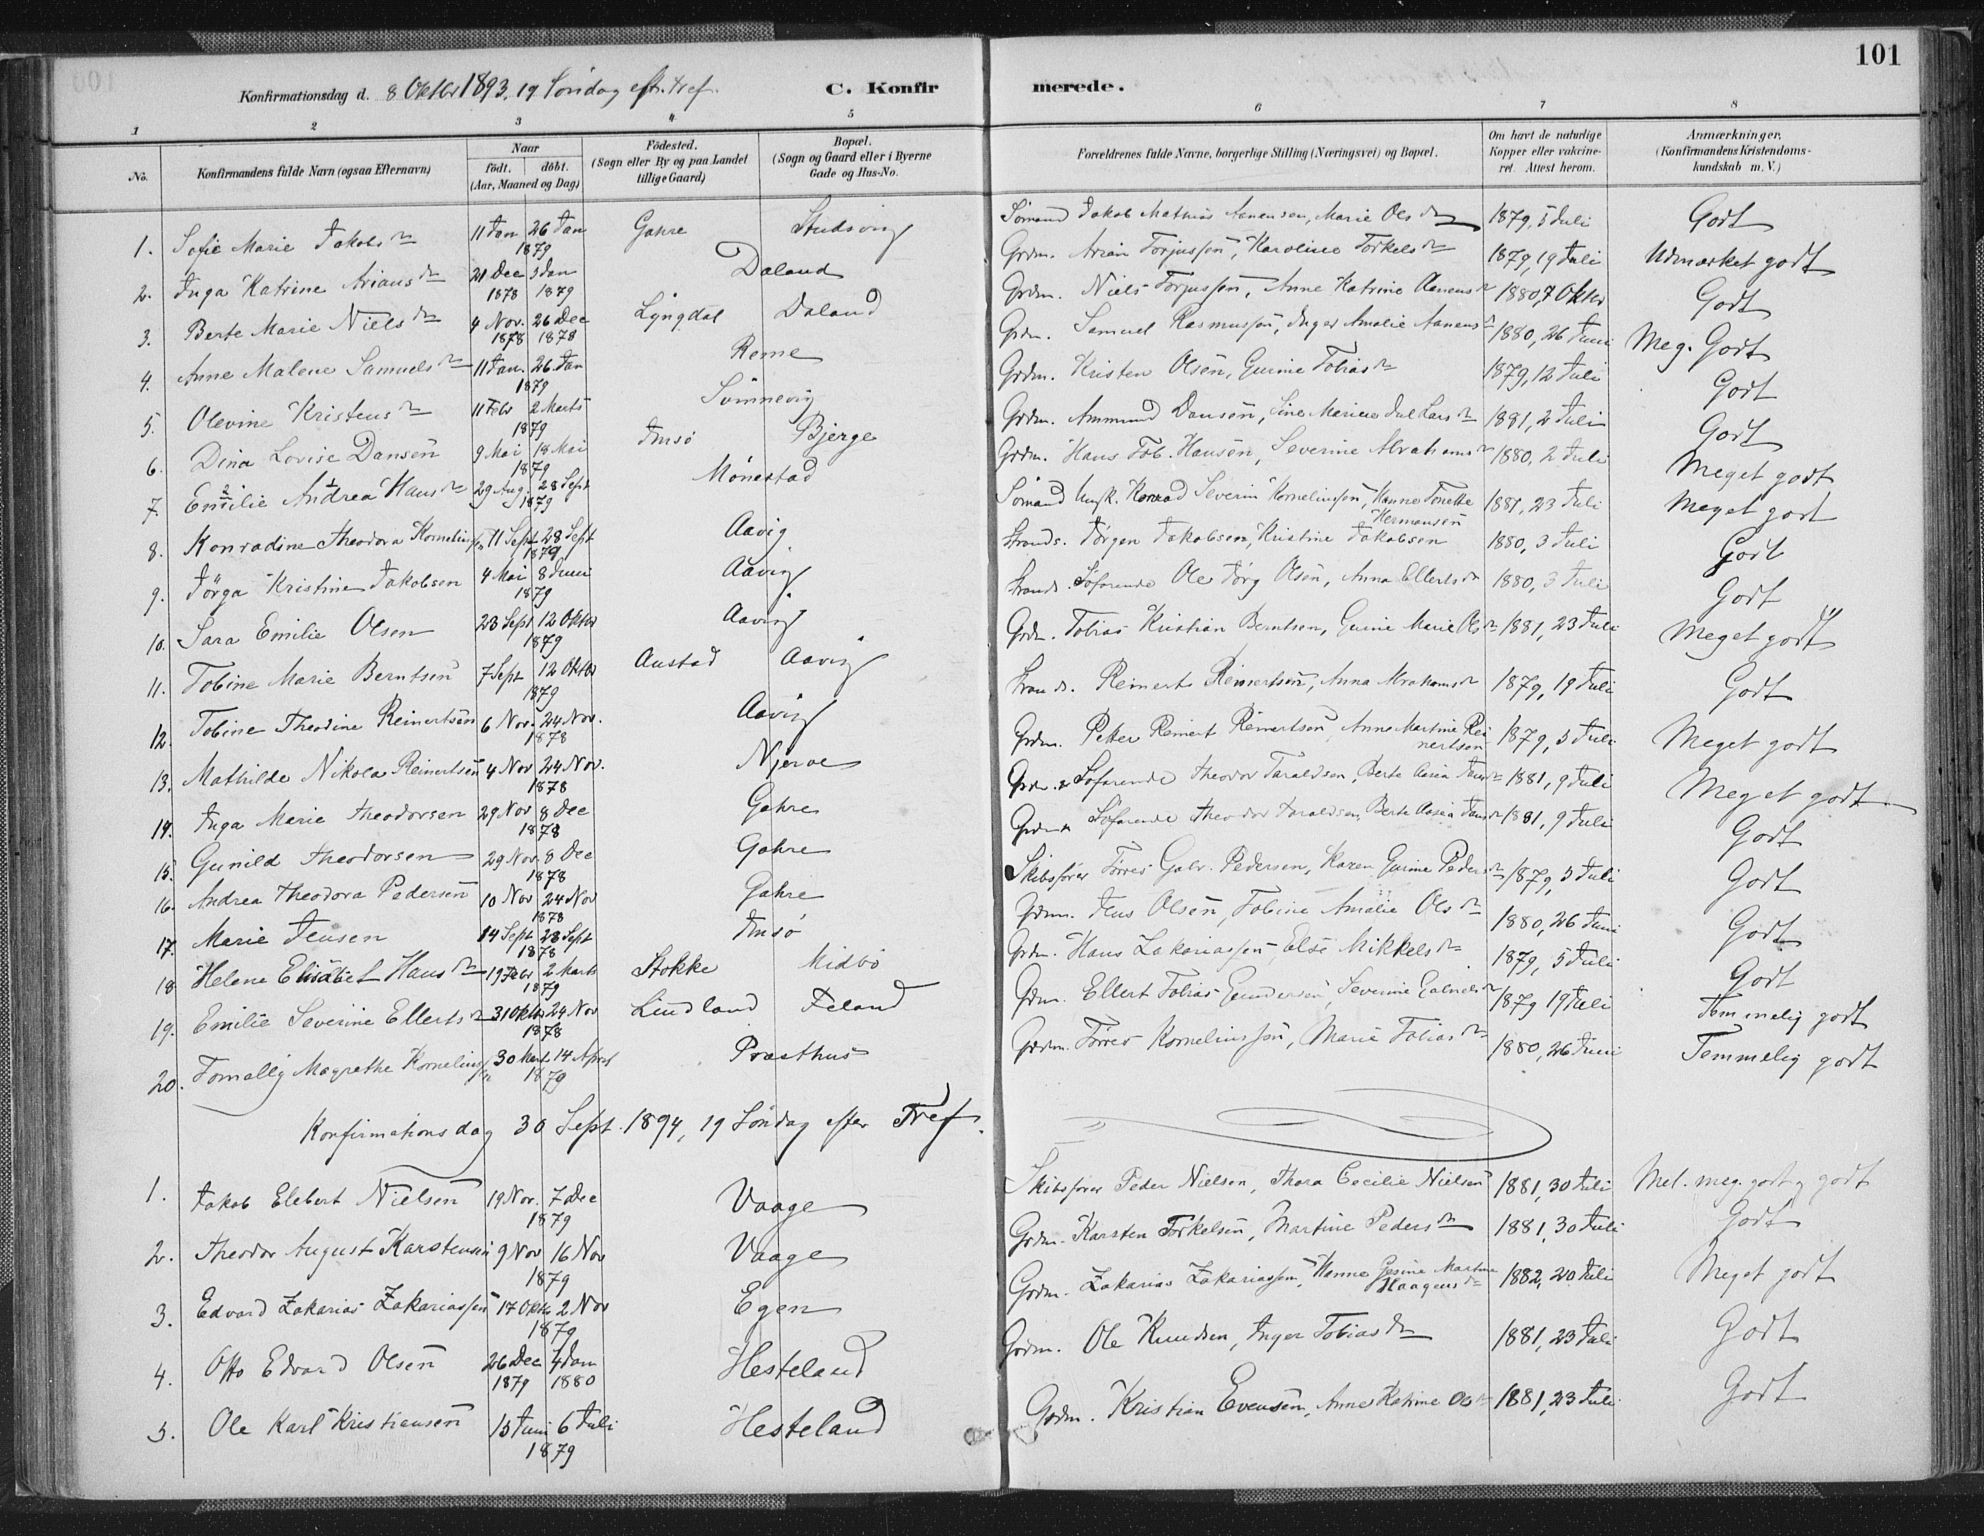 101
Konfirmationsdag d. 8 Oktbr 1893. 19 Søndag eft. Tref. C. Konfirmerede.
1 2 3 4 5 6 7 8
No. Konfirmandens fulde Navn (ogsaa Efternavn) Naar født. døbt. (Aar, Maaned og Dag) Fødested. (Sogn eller By og paa Landet tillige Gaard) Bopæl. (Sogn og Gaard eller i Byerne Gade og Hus-No. Forældrenes fulde Navne, borgerlige Stilling (Næringsvei) og Bopæl. Om havt de naturlige Kopper eller vakcineret. Attest herom. Anmærkninger, (Konfirmandens Kristendomskundskab m. V.)
1. Sofie Marie Jakobsdn 11 Jan 26 Jan 1879 Gahre Studsvig Sømand Jakob Mathias Aanensen, Marie Olsdn 1879, 5 Juli Godt
2. Inga Katrine Ariansdn 21 Dec 1878 3 Jan 1879 Daland Grdm. Arian Torjussen, Karoline Torkelsdn 1879, 19 Juli Udmærket godt
3. Berte Marie Nielsdn 4 Nov. 1878 26 Dec 1878 Lyngdal Daland Grdm. Niels Torjussen, Anne Katrine Aanensdn 1880, 7 Oktbr Godt
4. Anne Malene Samuelsdn 11 Jan. 26 Jan 1879 Rome Grdm. Samuel Rasmussen, Inger Amalie Aanensdn 1880, 26 Juni Meg. Godt
5. Olevine Kristensdn 11 Febr 2 Marts 1879 Svinnevig Grdm. Kristen Olsen, Gurine Tobiasdn 1879, 12 Juli Godt
6. Dina Lovise Dansen 9 Mai 18 Mai 1879 Imsø Bjerge Grdm. Ammund Dansen, Sine Larsdn 1881, 2 Juli Godt
7. Emilie Andrea Hansdn 29 Aug. 28 Sept 1879 Mønestad Grdm. Hans Tob. Hansen, Severine Abrahamsdn 1880, 2 Juli Meget godt
8. Konradine Theodora Kornelius 11 Sept 28 Sept 1879 Aavig Sømand Konrad Severin Korneliussen, Hanne Tonette Hermansen 1881, 23 Juli Meget godt
9. Jörga Kristine Jakobsen 4 Mai 8 Juni 1879 Aavig Strands. Jörgen Jakobsen, Kristine Jakobsen 1880, 3 Juli Godt
10. Sara Emilie Olsen 23 Sept 12 Oktbr 1879 Aavig Strands. Søfarende Ole Jörg Olsen, Anna Ellertsdn 1880, 3 Juli Godt
11. Tobine Marie Berntsen 7 Sept 12 Oktbr 1879 Austad Aavig Grdm. Tobias Kristian Berntsen, Gurine Marie Olsdn 1881, 23 Juli Meget godt
12. Tobine Theodine Reinertsen 6 Nov. 24 Nov. 1878 Aavig Strands. Reinert Reinertsen, Anna Abrahamsdn 1879, 19 Juli Godt
13. Mathilde Nikola Reinertsen 4 Nov 24 Nov. 1878 Njerve Grdm. Peter Reinert Reinertsen, Anne Martine Reinertsen 1879, 5 Juli Meget godt
14. Inga Marie Theodorsen 29 Nov 8 Dec 1878 Gahre Grdm. & Søfarende Theodor Taraldsen, Berte Aasea Jensdn 1881, 9 Juli Meget godt
15. Gunild Theodorsen 29 Nov 8 Dec 1878 Gahre Grdm. & Søfarende Theodor Taraldsen, Berte Aasea Jensdn 1881, 9 Juli Godt
16. Andrea Theodora Pedersen 10 Nov 24 Nov 1878 Gahre Skibsfører Tørres Gabr. Pedersen, Karen Gurine Pedersdn 1879, 5 Juli Godt
17. Marie Jensen 14 Sept 28 Sept 1878 Imsø Grdm. Jens Olsen, Tobine Amalie Olsdn 1880, 26 Juni Godt
18 Helene Elisabet Hansdn 19 Febr 2 Marts 1879 Stokke Midbø Grdm. Hans Zakariassen, Else Mikkelsdn 1879, 5 Juli Godt
19. Emilie Severine Ellertsdn 31 Oktbr 24 Nov 1878 Lindland Feland Grdm. Ellert Tobias Gundersen, Severine Gabrielsdn 1879 19 Juli Temmelig godt
20. Tomally Magrethe Kornelius 30 Marts 14 April 1879 Præsthus Grdm. Tørres Korneliussen, Marie Tobiasdn 1880, 26 Juni Temmelig godt
Konfirmationsdag 30 Sept. 1894, 19 Søndag efter Tref.
1. Jakob Elebert Nielsen 19 Nov. 7 Dec 1879 Vaage Skibsfører Peder Nielsen, Thora Cecilie Nielsen 1881, 30 Juli Mel. meg. godt og godt
2. Theodor August Karstensen 9 Nov 16 Nov 1879 Vaage Grdm. Karsten Torkelsen, Martine Pedersdn 1881, 30 Juli Godt
3. Edvard Zakarias Zakariassen 17 Oktbr 2 Nov 1879 Egen Grdm. Zakarias Zakariassen, Hanne Gesine Martine Haagensdn 1882, 20 Juli Meget godt
4. Otto Edvard Olsen 26 Dec 1879 4 Jan 1880 Hesteland Grdm. Ole Knudsen, Inger Tobiasdn 1881, 23 Juli Godt
5. Ole Karl Kristiansen 15 Juni 6 Juli 1879 Hesteland Grdm. Kristian Evensen, Anne Katrine Olsdn 1881, 23 Juli Godt